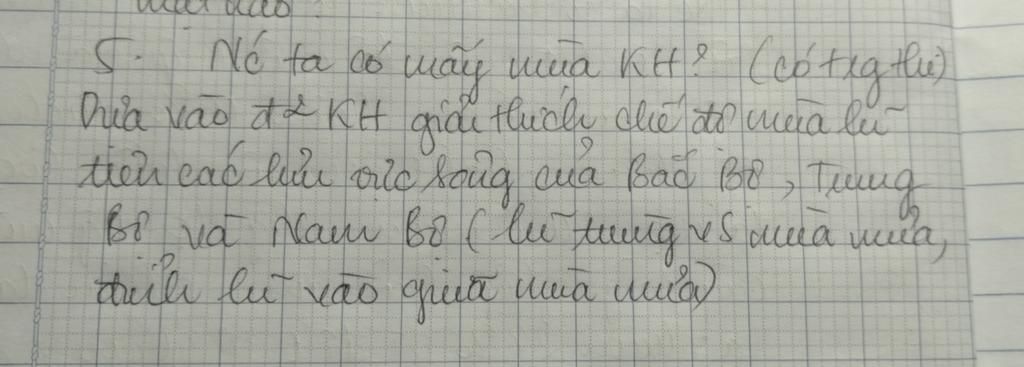 5. Nc ta có mấy mùa KH? (có txg thu)
Dựa vào đ² KH giải thích chế độ mùa lũ
trên các lưu vực sông của Bắc Bộ, Trung
Bộ và Nam Bộ (lũ trùng vs mùa mưa,
đỉnh lũ vào giữa mùa mưa)